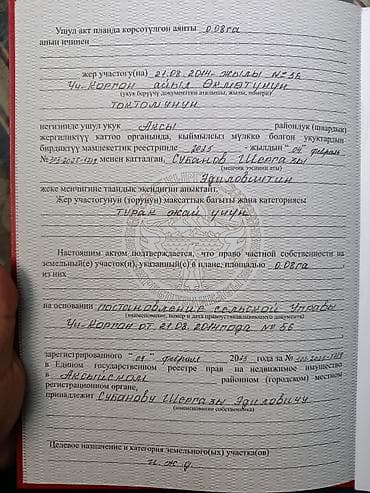 Ушул акт планда көрсөтүлгөн аянты 0.08га
анын ичинен
жер участогу(на) 21.08.2014-жылы №56
Үч-Коргон айыл Өкмөтүнүн
(укук берүүчү документтин аталышы, жылы, номери)
токтомунун
негизинде ушул укук Аксы райондук (шаардык)
жергиликтүү каттоо органында, кыймылсыз мүлккө болгон укуктардын
бирдиктүү мамлекеттик реестринде 2025 -жылдын
№ менен катталган, Субанов Шергазы
(менчик ээсинин аты)
Эдиловичтин
жеке менчигине таандык экендигин аныктайт.
Жер участогунун (торунун) максаттык багыты жана категориясы
турак жай үчүн
Настоящим актом подтверждается, что право частной собственности на
земельный(е) участок(и), указанный(е) в плане, площадью 0.08га
из них
на основании постановление сельской Управы
(наименование, номер и дата правоустанавливающего документа)
Үч-Коргон от 21.08.2014года №56
зарегистрированного февраля года за №
в Едином государственном реестре прав на недвижимое имущество
в Аксыйском районном (городском) местном
регистрационном органе,
принадлежит Субанову Шергазы Эдиловичу
(наименование собственника)
Целевое назначение и категория земельного(ых) участка(ов)
и.ж.д.